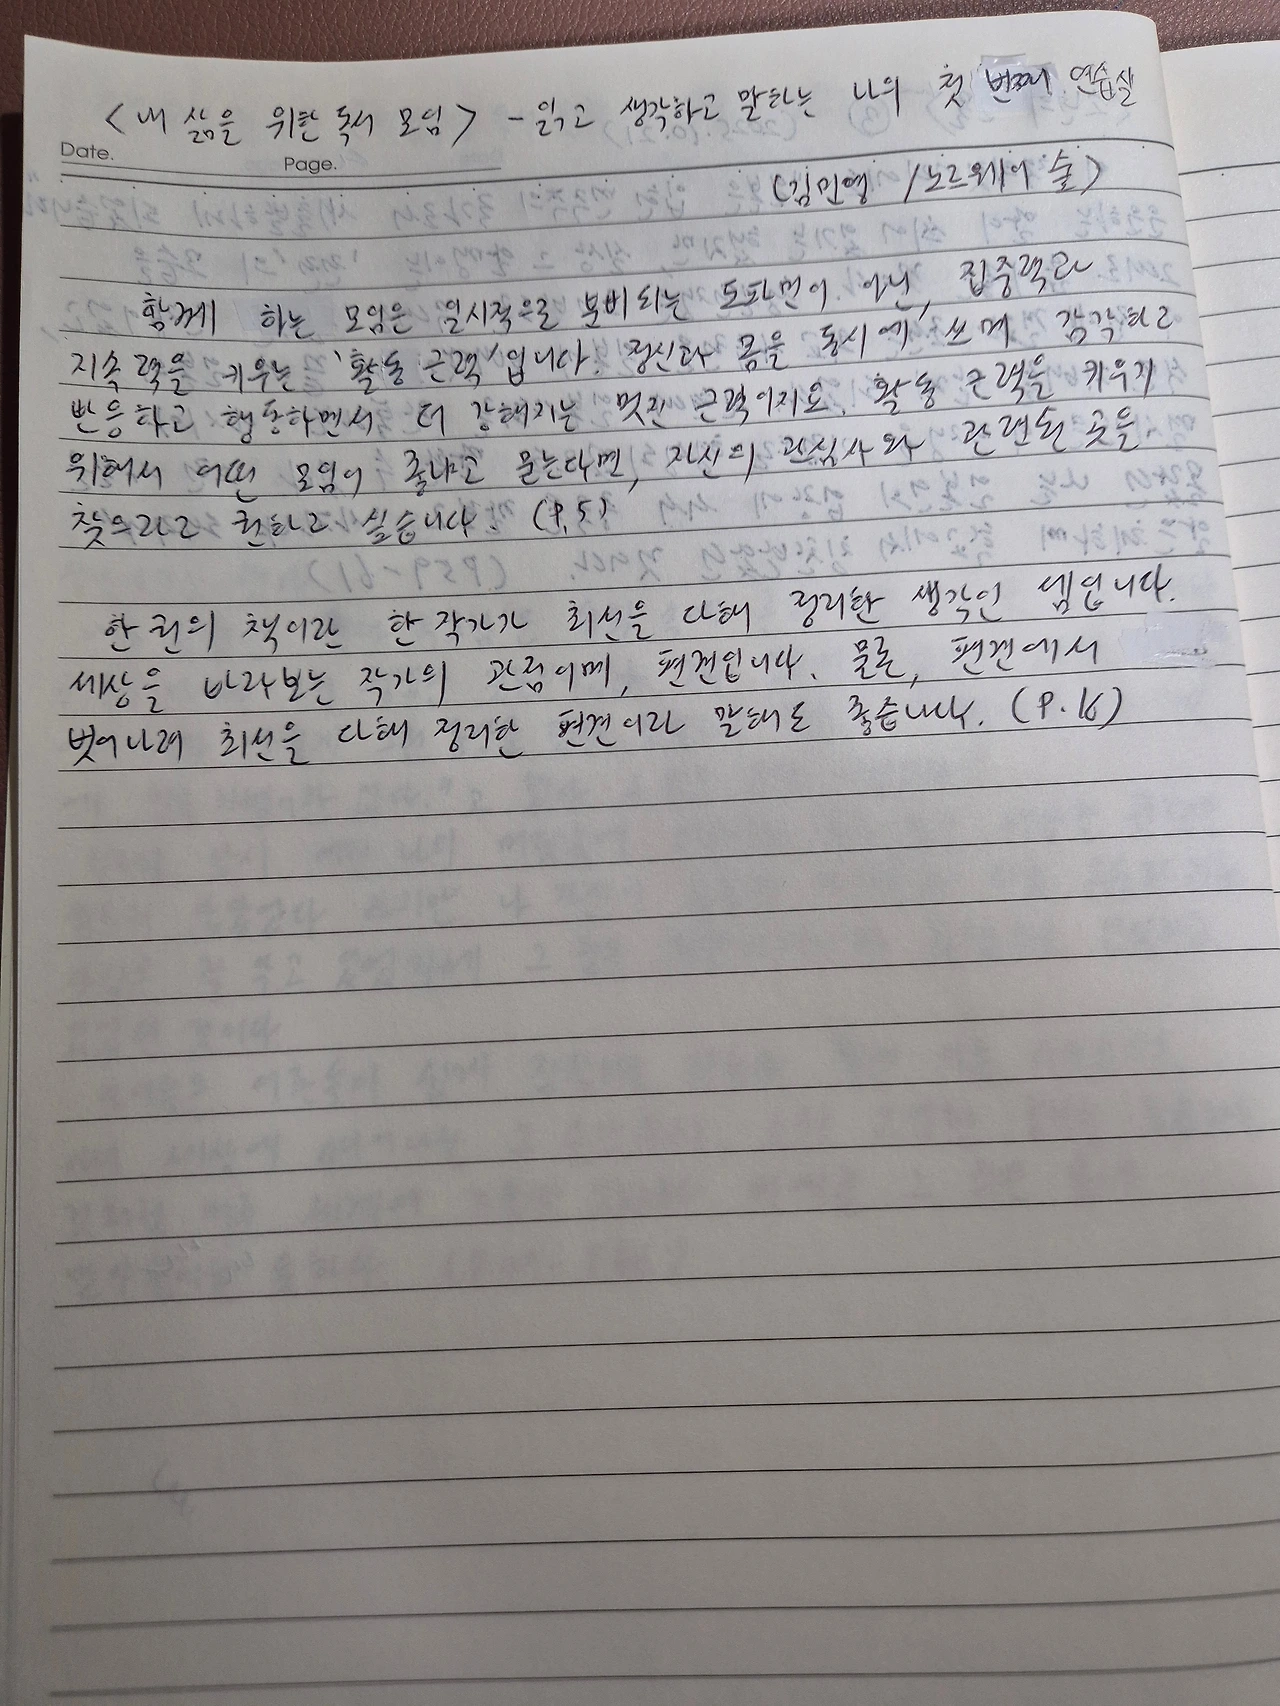 <내 삶을 위한 독서 모임> - 읽고 생각하고 말하는 나의 첫 번째 연습실
Date.
Page.
(김민영 / 노르웨이 숲)
함께 하는 모임은 일시적으로 분비되는 도파민이 아닌, 집중력과
지속력을 키우는 '활동 근력'입니다. 정신과 몸을 동시에 쓰며 감각하고
반응하고 행동하면서 더 강해지는 멋진 근력이지요. 활동 근력을 키우기
위해서 어떤 모임이 좋냐고 묻는다면, 자신의 관심사와 관련된 곳을
찾으라고 권하고 싶습니다. (P.5)
한 권의 책이란 한 작가가 최선을 다해 정리한 생각인 셈입니다.
세상을 바라보는 작가의 관점이며, 편견입니다. 물론, 편견에서
벗어나려 최선을 다해 정리한 편견이라 말해도 좋습니다. (P.16)